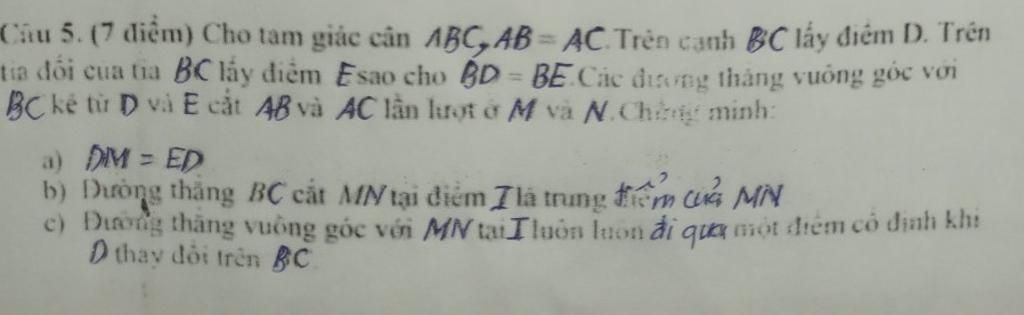 Câu 5. (7 điểm) Cho tam giác cân ABC, AB = AC. Trên cạnh BC lấy điểm D. Trên
tia đối của tia BC lấy điểm E sao cho BD = BE. Các đường thẳng vuông góc với
BC kẻ từ D và E cắt AB và AC lần lượt ở M và N. Chứng minh:
a) DM = ED
b) Đường thẳng BC cắt MN tại điểm I là trung điểm của MN
c) Đường thẳng vuông góc với MN tại I luôn luôn đi qua một điểm cố định khi
D thay đổi trên BC